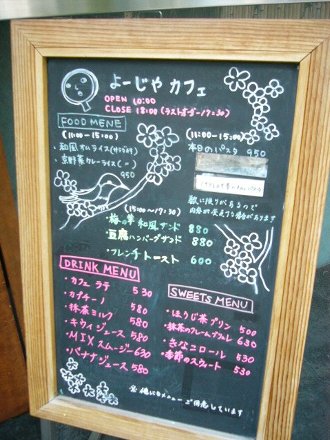 よーじや カフェ
OPEN 10:00
CLOSE 18:00 (ラストオーダー17:30)
FOOD MENE
(11:00-15:00)
・和風オムライス(サラダ付)
・京野菜カレーライス(〃)
950
(11:00-15:00)
本日のパスタ 950
数に限りがあるので
内容が変更する場合があります
(15:00~17:30)
・梅の華 和風サンド 880
・豆腐ハンバーグサンド 880
・フレンチトースト 600
DRINK MENU
・カフェラテ 530
・カプチーノ 580
・抹茶ミルク 580
・キウイジュース 580
・MIXスムージー 630
・バナナジュース 580
SWEETS MENU
・ほうじ茶プリン 500
・抹茶のクレームブリュレ 630
・きなこロール 530
・季節のスウィート 530
他にもメニューご用意しています